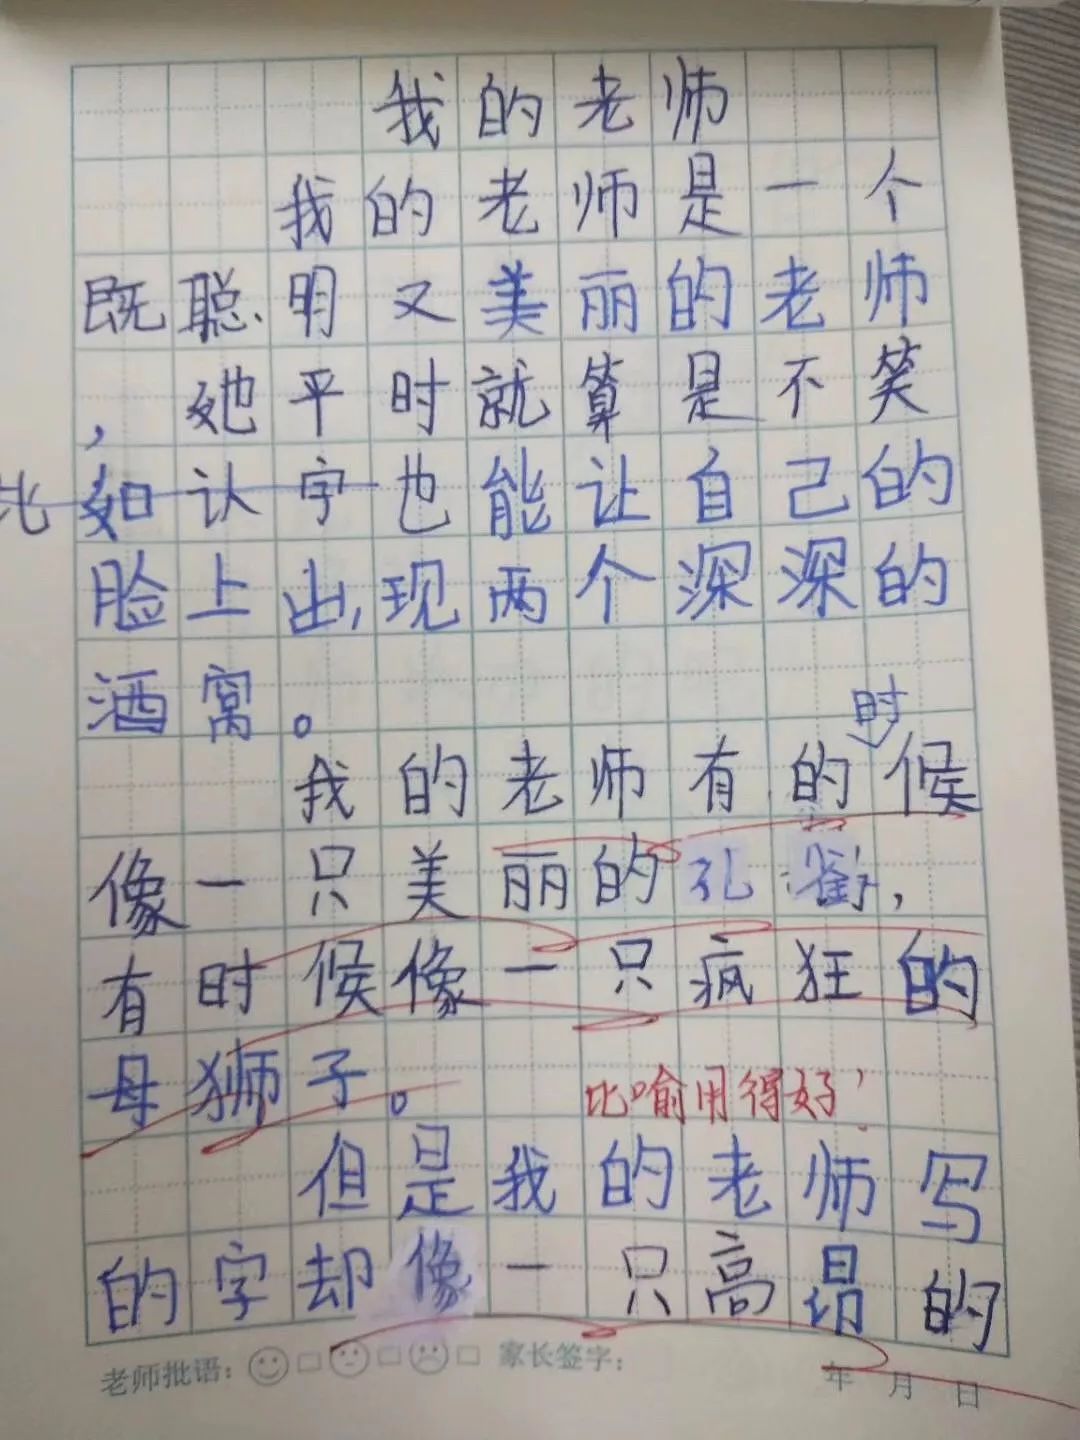 我的老师
我的老师是一个
既聪明又美丽的老师
，她平时就算是不笑
比如认字也能让自己的
脸上出现两个深深的
酒窝。
时
我的老师有的候
像一只美丽的孔雀，
有时候像一只疯狂的
母狮子。
比喻用得好！
但是我的老师写
的字却像一只高昂的
老师批语： 家长签字：
年 月 日